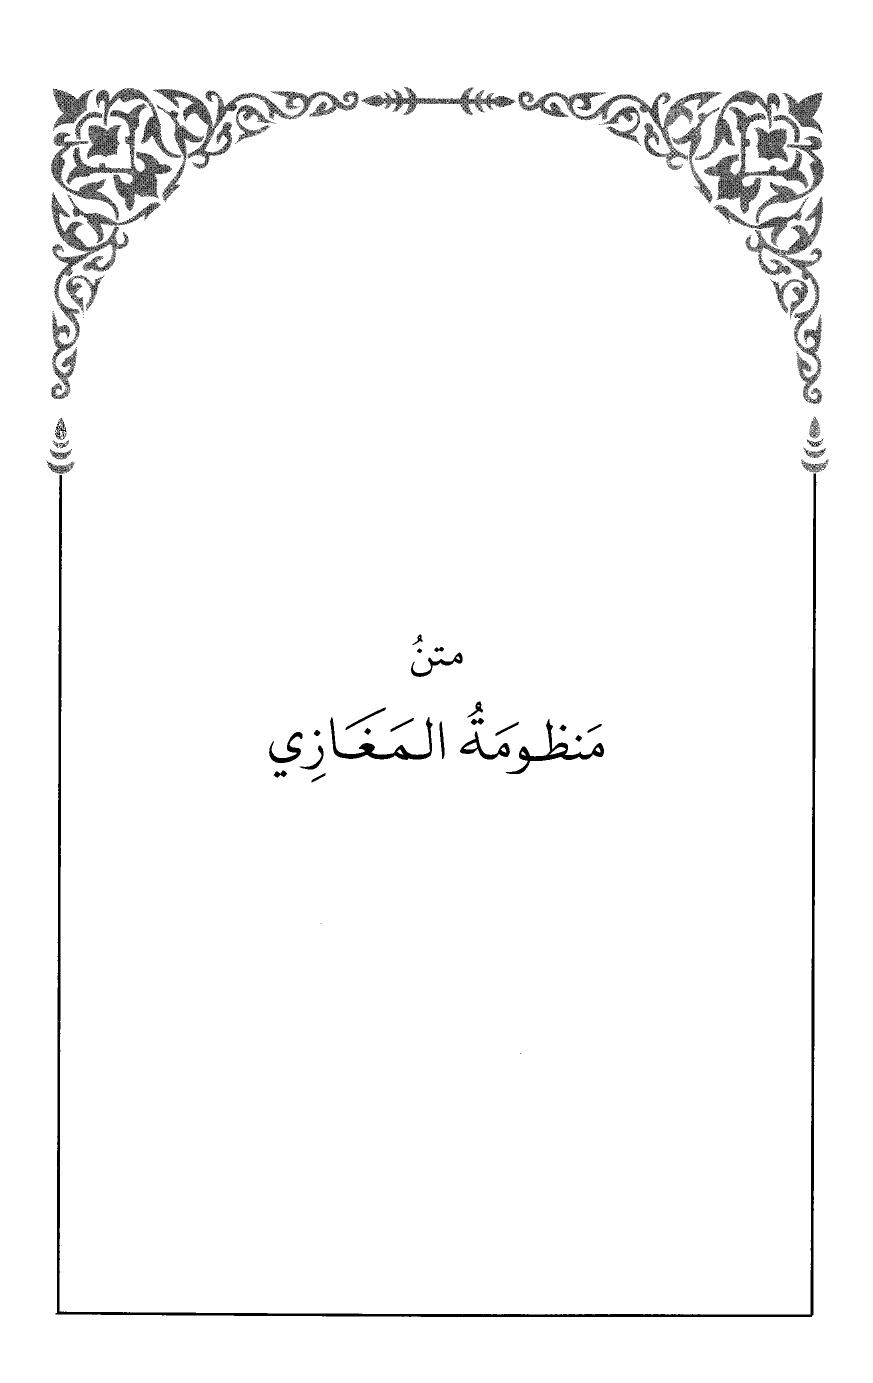 متنُ
مَنظومَةُ المَغَازِي